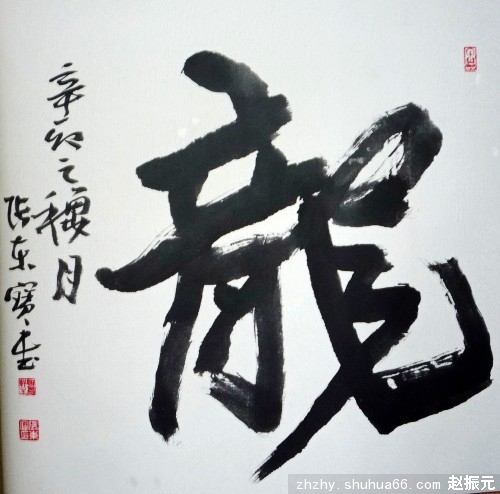 龍
辛卯之月
张东寶书
zhzhy.shuhua66.com 赵振元